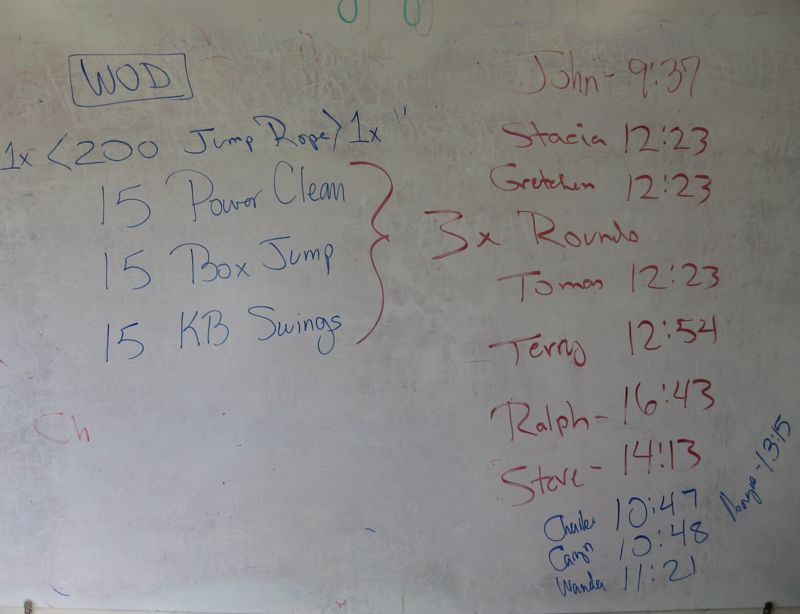 WOD
1x <200 Jump Rope> 1x "
15 Power Clean
15 Box Jump
15 KB Swings
3x Rounds
Ch
John - 9:37
Stacia 12:23
Gretchen 12:23
Tomas 12:23
Terry 12:54
Ralph - 16:43
Steve - 14:13
Charles 10:47
Caryn 10:48
Wanda 11:21
- 13:15